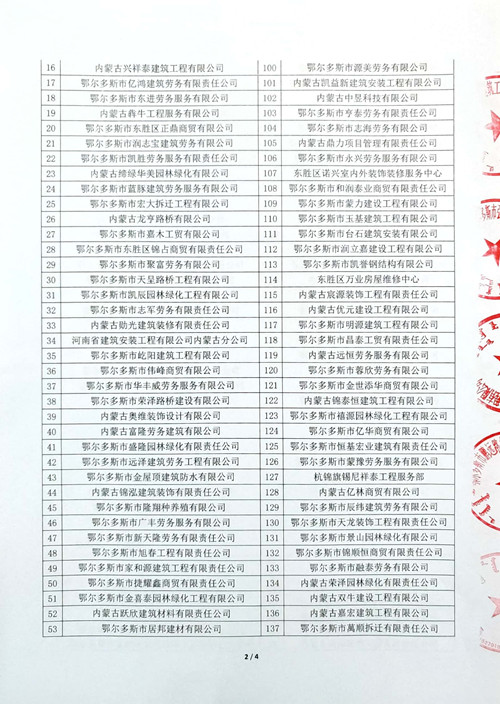 16 内蒙古兴祥泰建筑工程有限公司 100 鄂尔多斯市源美劳务有限公司
17 鄂尔多斯市亿鸿建筑劳务有限责任公司 101 内蒙古凯益新建筑安装工程有限公司
18 鄂尔多斯市东进劳务服务有限公司 102 内蒙古中昱科技有限公司
19 内蒙古犇牛工程服务有限公司 103 鄂尔多斯市亨泰劳务有限公司
20 鄂尔多斯市东胜区正鼎商贸有限公司 104 鄂尔多斯市志海劳务有限公司
21 鄂尔多斯市润志宝建筑劳务有限公司 105 内蒙古鼎力项目管理有限责任公司
22 鄂尔多斯市凯胜劳务服务有限责任公司 106 鄂尔多斯市永兴劳务服务有限公司
23 内蒙古缔绿华美园林绿化有限公司 107 东胜区诺兴室内外装饰装修服务中心
24 鄂尔多斯市蓝脉建筑劳务服务有限公司 108 鄂尔多斯市和润泰业商贸有限责任公司
25 鄂尔多斯市宏大拆迁工程有限公司 109 鄂尔多斯市蒙力建设工程有限公司
26 内蒙古龙亨路桥有限公司 110 鄂尔多斯市玉基建筑工程有限公司
27 鄂尔多斯市嘉木工贸有限公司 111 鄂尔多斯市台石建筑安装有限公司
28 鄂尔多斯市东胜区锦占商贸有限责任公司 112 鄂尔多斯市润立嘉建设工程有限公司
29 鄂尔多斯市聚富劳务有限公司 113 鄂尔多斯市凯誉钢结构有限公司
30 鄂尔多斯市天呈路桥工程有限公司 114 东胜区万业房屋维修中心
31 鄂尔多斯市凯辰园林绿化工程有限公司 115 内蒙古宸源装饰工程有限责任公司
32 鄂尔多斯市志军劳务有限责任公司 116 内蒙古优元建设工程有限公司
33 内蒙古劭光建筑装修有限责任公司 117 鄂尔多斯市明源建筑工程有限公司
34 河南省建筑安装工程有限公司内蒙古分公司 118 鄂尔多斯市昌泰工贸有限责任公司
35 鄂尔多斯市屹阳建筑工程有限公司 119 内蒙古远恒劳务服务有限公司
36 鄂尔多斯市伟峰商贸有限公司 120 鄂尔多斯市蓉欣劳务有限公司
37 鄂尔多斯市华丰威劳务服务有限公司 121 鄂尔多斯市金世添华商贸有限公司
38 鄂尔多斯市荣泽路桥建设有限公司 122 内蒙古锦泰恒建筑工程有限公司
39 内蒙古奥维装饰设计有限公司 123 鄂尔多斯市禧源园林绿化工程有限公司
40 内蒙古富隆劳务建筑有限公司 124 鄂尔多斯市亿华商贸有限公司
41 鄂尔多斯市盛隆园林绿化有限责任公司 125 鄂尔多斯市恒基宏业建筑有限责任公司
42 鄂尔多斯市远泽建筑劳务工程有限公司 126 鄂尔多斯市蒙豫劳务服务有限公司
43 鄂尔多斯市金屋顶建筑防水有限公司 127 杭锦旗锡尼祥泰工程服务部
44 内蒙古锦泓建筑装饰有限责任公司 128 内蒙古亿林商贸有限公司
45 鄂尔多斯市隆翔种养殖有限公司 129 鄂尔多斯市辰纬建筑劳务有限公司
46 鄂尔多斯市广丰劳务服务有限公司 130 鄂尔多斯市天龙装饰工程有限责任公司
47 鄂尔多斯市新天隆劳务有限责任公司 131 鄂尔多斯市景山园林绿化有限公司
48 鄂尔多斯市旭春工程有限责任公司 132 鄂尔多斯市锦顺恒商贸有限责任公司
49 鄂尔多斯市家和源建筑工程有限责任公司 133 鄂尔多斯市融泰劳务有限公司
50 鄂尔多斯市捷耀鑫商贸有限责任公司 134 内蒙古荣泽园林绿化有限责任公司
51 鄂尔多斯市金喜泰园林绿化工程有限公司 135 内蒙古双牛建设工程有限公司
52 内蒙古跃欣建筑材料有限责任公司 136 内蒙古嘉宏建筑工程有限公司
53 鄂尔多斯市居邦建材有限公司 137 鄂尔多斯市萬顺拆迁有限责任公司
2 / 4